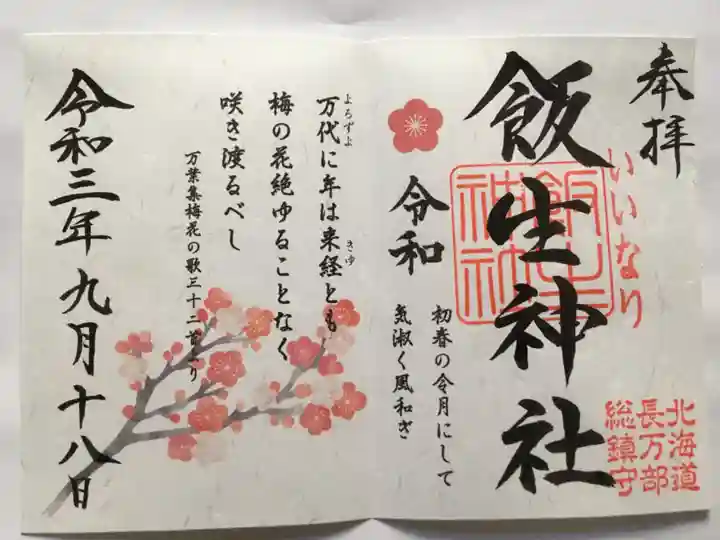 奉拝
いいなり
飯生神社
北海道
長万部
総鎮守
令和
初春の令月にして
気淑く風和ぎ
万代に年は来経とも
よろずよ
きゆ
梅の花絶ゆることなく
咲き渡るべし
万葉集梅花の歌三十二首より
令和三年九月十八日